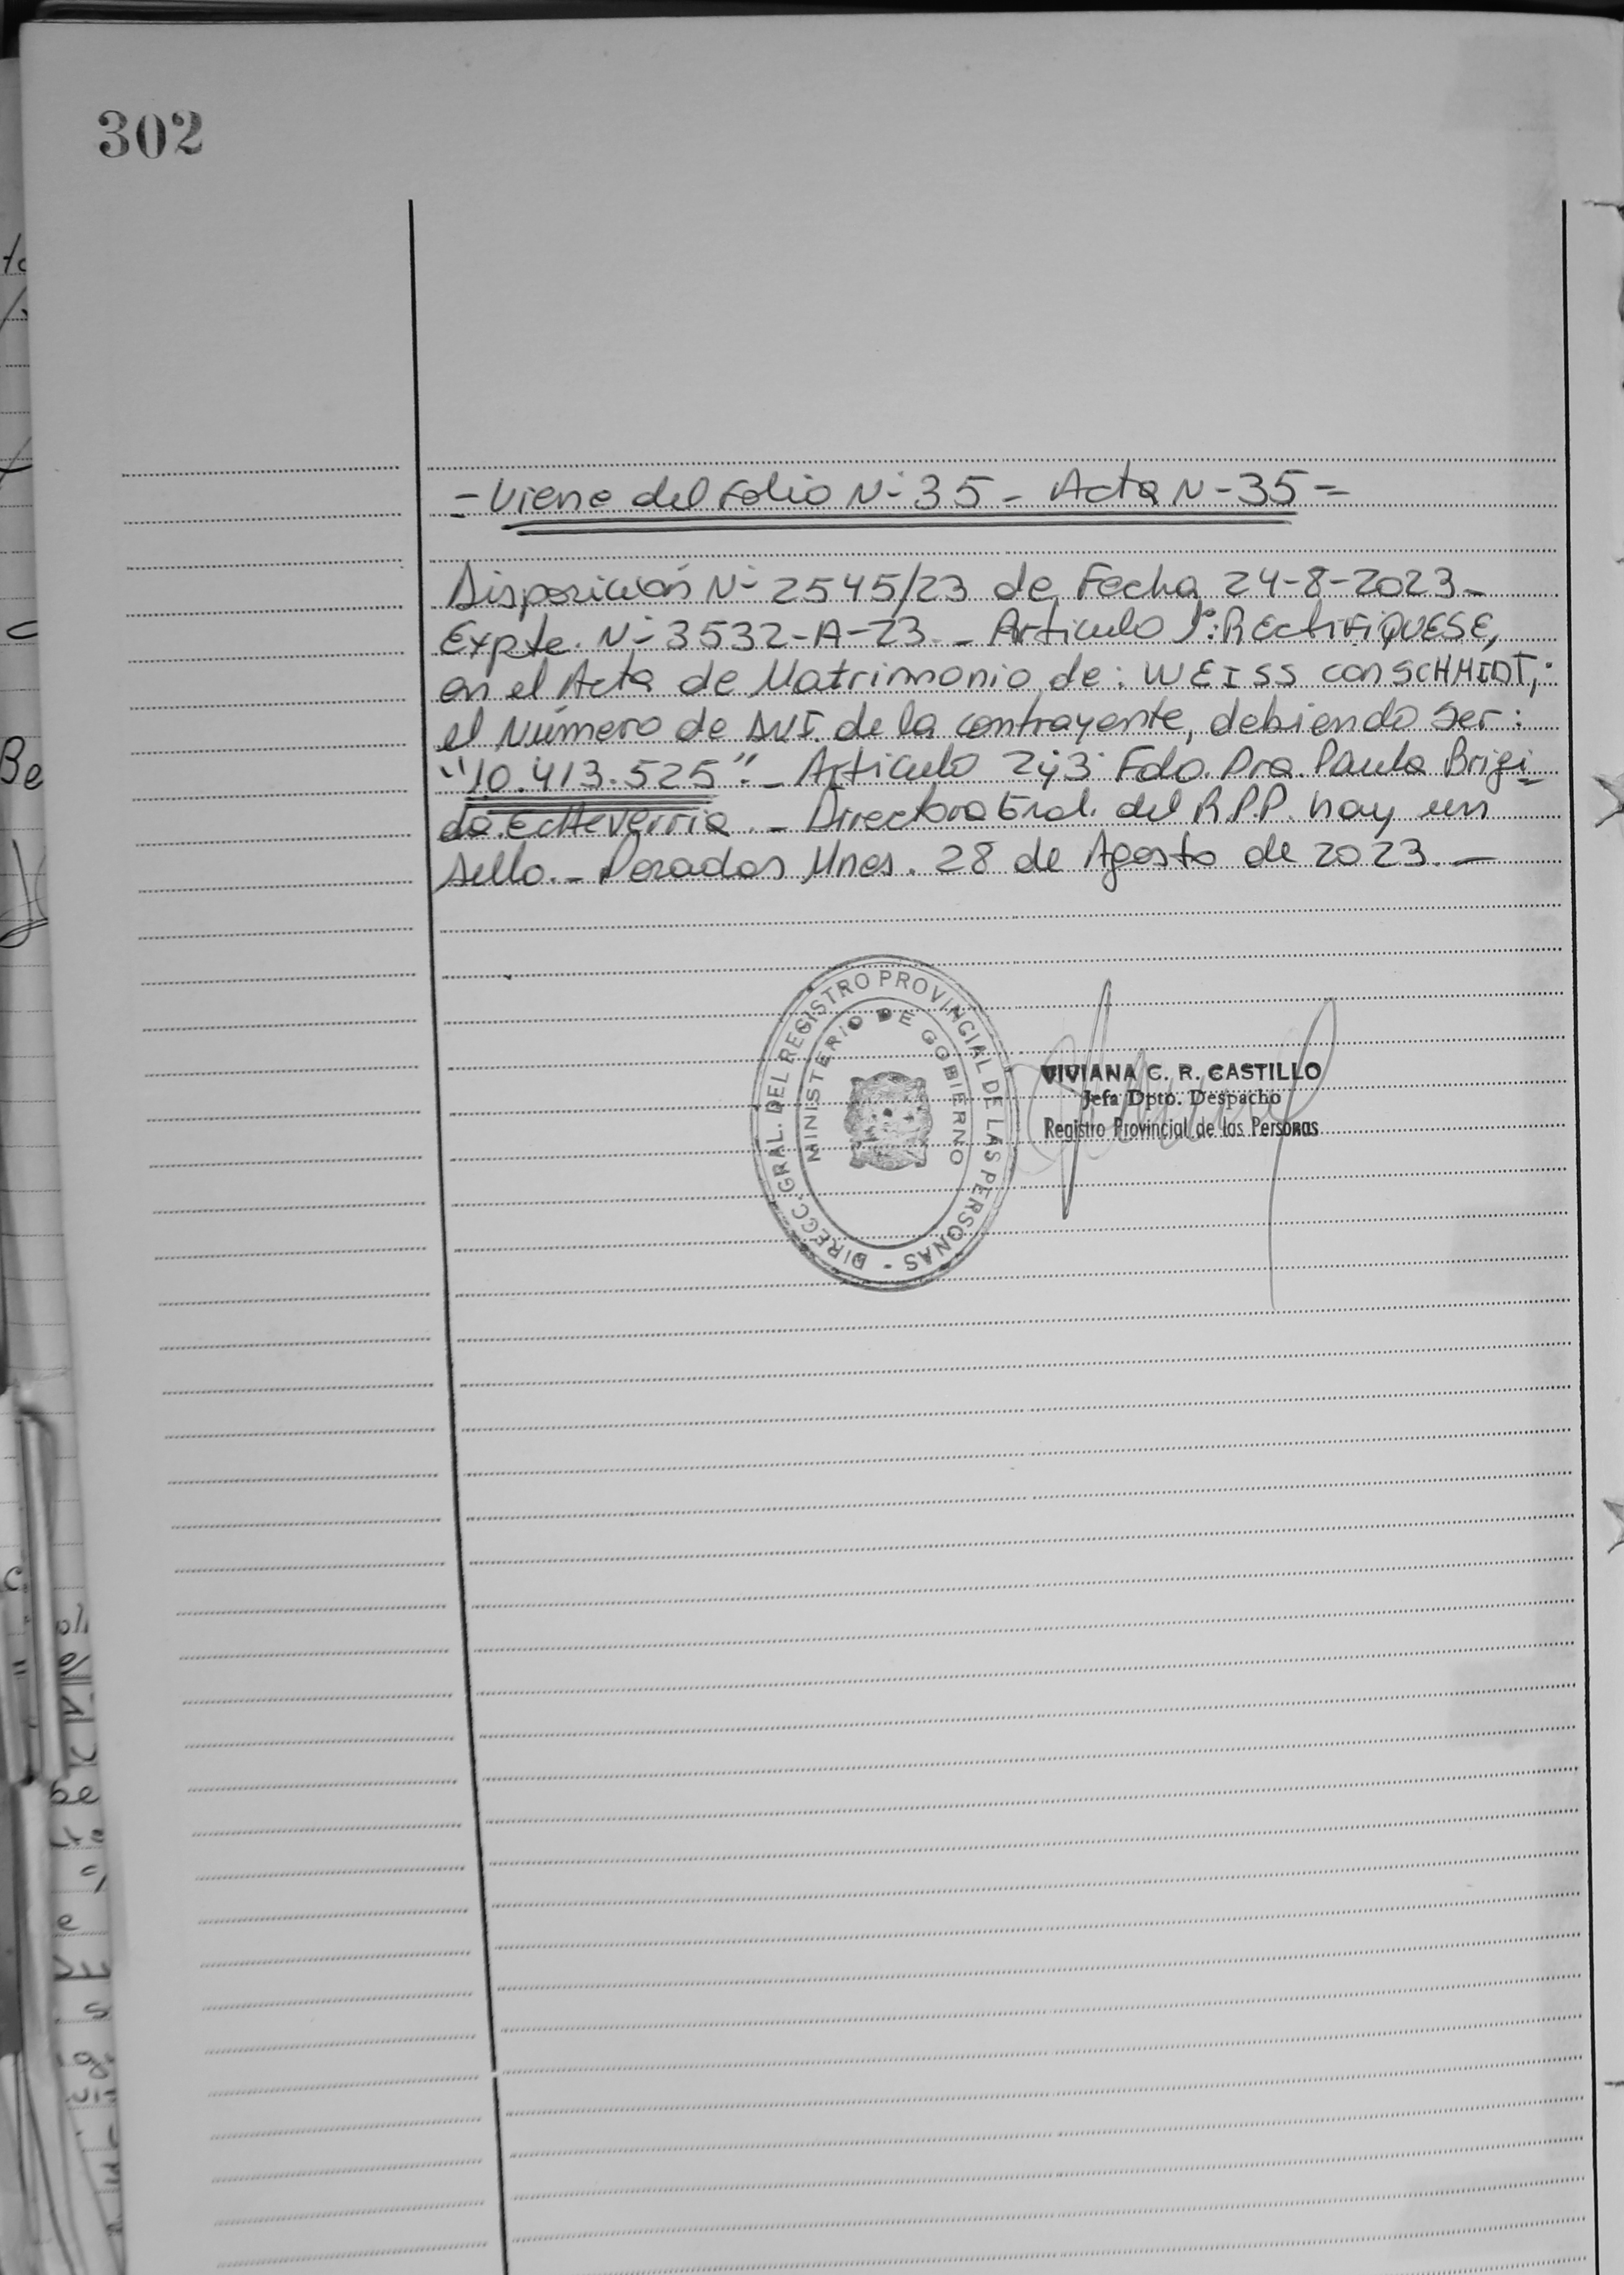 302
- Viene del Folio N- 35 - Acta N- 35 =
Disposición N- 2545/23 de Fecha 24-8-2023-
Expte. N- 3532-A-23.- Articulo 1°: RECtiFiQUESE,
en el Acta de Matrimonio de: WEISS con SCHMIDT,
el Número de DNI. de la contrayente, debiendo ser:
"10.413.525".- Articulo 2y3 Fdo. Dra. Paula Brigi-
da Echeverria.- Directora Gral. del R.P.P. hay un
sello.- Posadas Mnes. 28 de Agosto de 2023.-
DIRECC. GRAL. DEL REGISTRO PROVINCIAL DE LAS PERSONAS -
MINISTERIO DE GOBIERNO
VIVIANA C. R. CASTILLO
Jefa Dpto. Despacho
Registro Provincial de las Personas